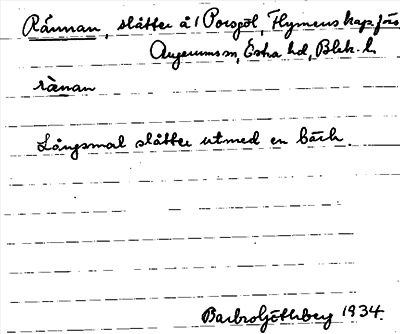 Rännan, slåtter å 1 Porsgöl, Flymens kapför
Augerums sn, Östra hd, Blek. l.
rä̀nan
Långsmal slåtter utmed en bäck.
Barbro Götherberg 1934.